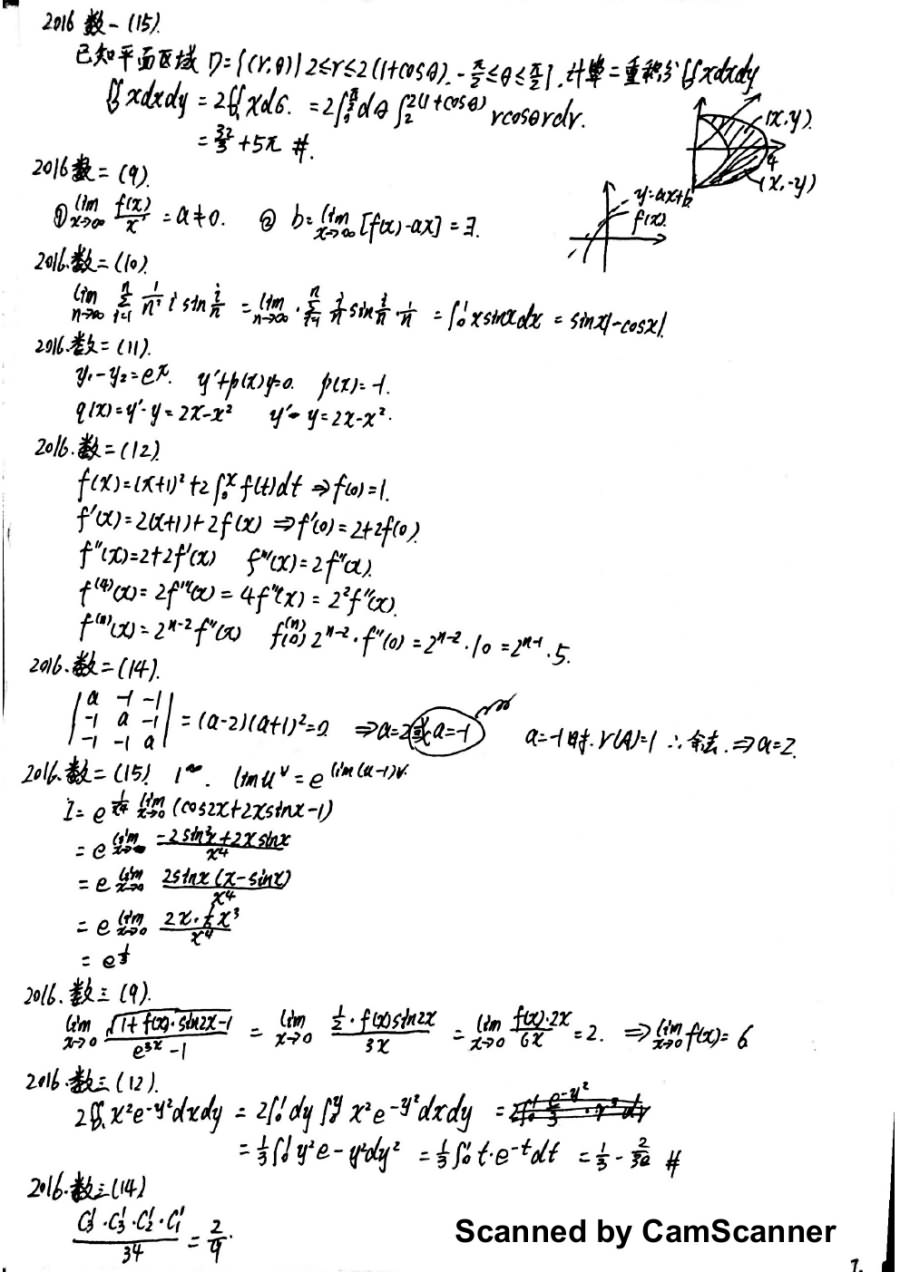 2016 数一 (15).
已知平面区域 D={(r,θ)|2≤r≤2(1+cosθ). -π/2≤θ≤π/2}. 计算二重积分∬xdxdy
∬xdxdy = 2∬xdσ. = 2∫₀^{π/2}dθ∫₂^{2(1+cosθ)} rcosθrdr.
= 32/3 +5π #.
(x,y).
4
(x,-y)
2016 数二 (9).
① lim_{x→∞} f(x)/x = a≠0. ② b=lim_{x→∞}[f(x)-ax] = ∃.
y=ax+b
f(x).
2016.数二(10).
lim_{n→∞} Σ_{i=1}^{n} 1/n² i sin i/n = lim_{n→∞} · Σ_{i=1}^{n} i/n sin i/n · 1/n = ∫₀¹xsinxdx = sin1-cos1.
2016.数二(11).
y₁-y₂=eˣ. y'+p(x)y=0. p(x)=-1.
q(x)=y'-y=2x-x² y'-y=2x-x².
2016.数二(12).
f(x)=(x+1)²+2∫₀ˣf(t)dt ⇒f(0)=1.
f'(x)=2(x+1)+2f(x) ⇒f'(0)=2+2f(0).
f''(x)=2+2f'(x) f'''(x)=2f''(x).
f⁽⁴⁾(x)=2f'''(x)=4f''(x)=2²f''(x).
f⁽ⁿ⁾(x)=2ⁿ⁻²f''(x) f⁽ⁿ⁾(0) 2ⁿ⁻²·f''(0)=2ⁿ⁻²·10=2ⁿ⁻¹·5.
2016.数二(14).
|a -1 -1|
|-1 a -1| =(a-2)(a+1)²=0. ⇒a=2或a=-1 a=-1时. r(A)=1 ∴舍去. ⇒a=2.
|-1 -1 a|
2016.数二(15). 1^∞. lim u^v = e^{lim(u-1)v}.
I= e^{1/x⁴} lim_{x→0} (cos2x+2xsinx-1)
= e lim_{x→0} (-2sin²x+2xsinx)/x⁴
= e lim_{x→0} 2sinx(x-sinx)/x⁴
= e lim_{x→0} (2x·1/6x³)/x⁴
= e^{1/3}
2016.数三(9).
lim_{x→0} (√(1+f(x)·sin2x)-1)/(e^{3x}-1) = lim_{x→0} (1/2·f(x)sin2x)/3x = lim_{x→0} f(x)·2x/6x = 2. ⇒lim_{x→0}f(x)= 6
2016.数三(12).
2∬D₁x²e^{-y²}dxdy = 2∫₀¹dy∫₀^y x²e^{-y²}dxdy =
= 1/3∫₀¹y²e-y²dy² = 1/3∫₀¹t·e^{-t}dt = 1/3 - 2/3e #
2016.数三(14)
C₃¹·C₃¹·C₂¹·C₁¹/3⁴ = 2/9.
Scanned by CamScanner
7.